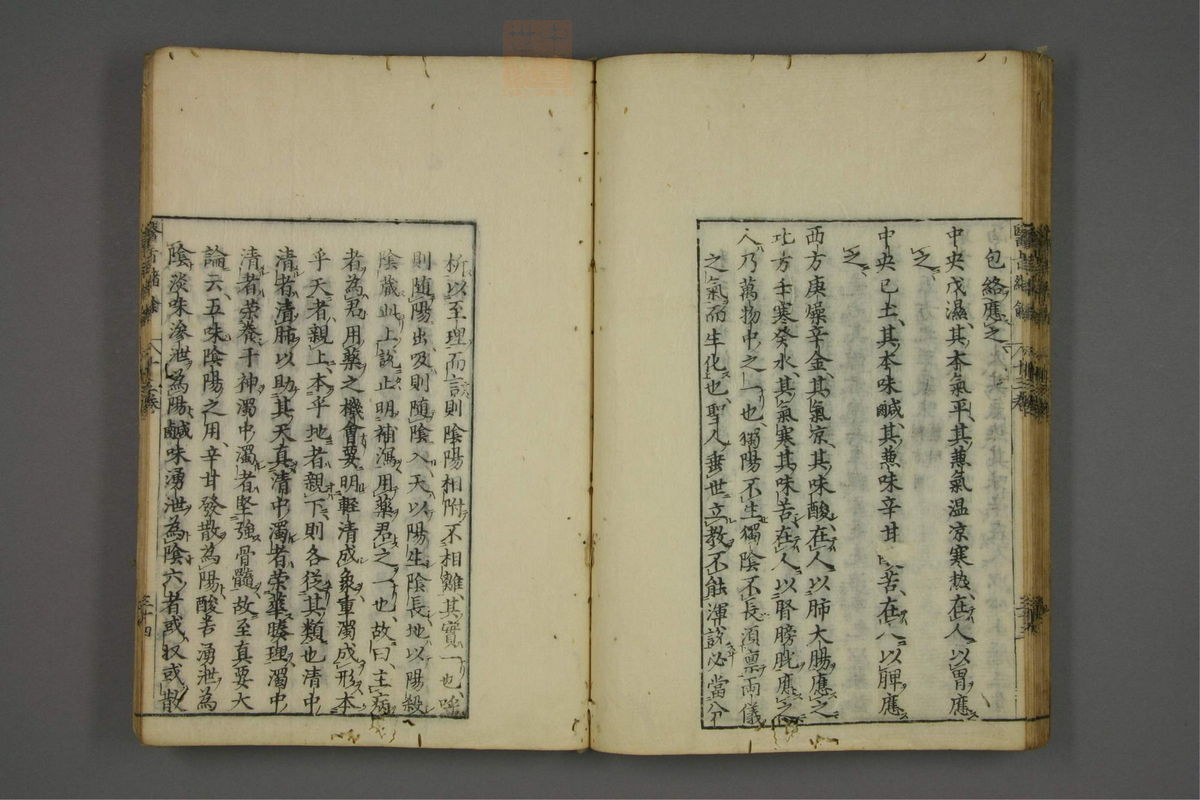 包絡應之
中央戊濕、其本氣平、其蒸氣温凉寒熱、在人以胃應
之
中央己土、其本味鹹、其蒸味辛甘苦、在人以脾應
之
西方庚燥辛金、其氣凉、其味酸、在人以肺大腸應之
北方壬寒癸水、其氣寒其味苦、在人以腎膀胱應之
人乃萬物中之一也、獨陽不生獨陰不長須禀兩儀
之氣而生化也、聖人垂世立教不能渾說必當分
析以至理而言則陰陽相附不相離其實一也、呼
則隨陽出吸則隨陰入天以陽生陰長地以陽殺
陰藏此上說止明補瀉用藥君之一也、故曰、主病
者為君用藥之機會要明輕清成象重濁成形本
乎天者親上本乎地者親下則各從其類也清中
清者清肺以助其天真清中濁者榮華腠理濁中
清者榮養于神濁中濁者堅強骨髓故至真要大
論云五味陰陽之用、辛甘發散為陽酸苦湧泄為
陰淡味滲泄為陽鹹味湧泄為陰六者或收或散
三十四